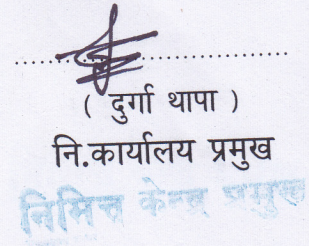 ( दुर्गा थापा )
नि.कार्यालय प्रमुख
निमित्त केन्द्र प्रमुख